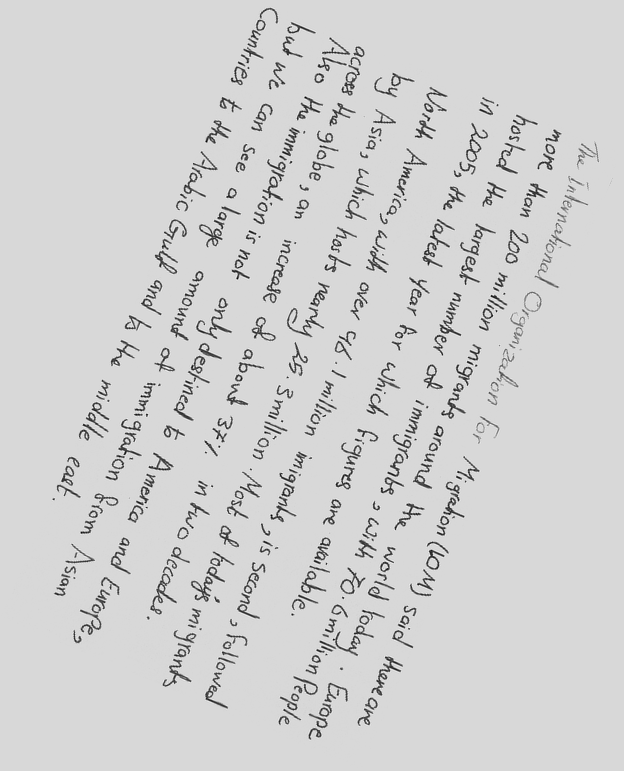 The International Organization for Migration (IOM) said there are
more than 200 million migrants around the world today. Europe
hosted the largest number of immigrants, with 70.6 million People
in 2005, the latest year for which figures are available.
North America, with over 45.1 million imigrants, is second, followed
by Asia, which hosts nearly 25.3 million. Most of today's migrants
across the globe, an increase of about 37% in two decades.
Also the immigration is not only destined to America and Europe,
but we can see a large amount of immigration from Asian
Countries to the Arabic Gulf and to the middle east.